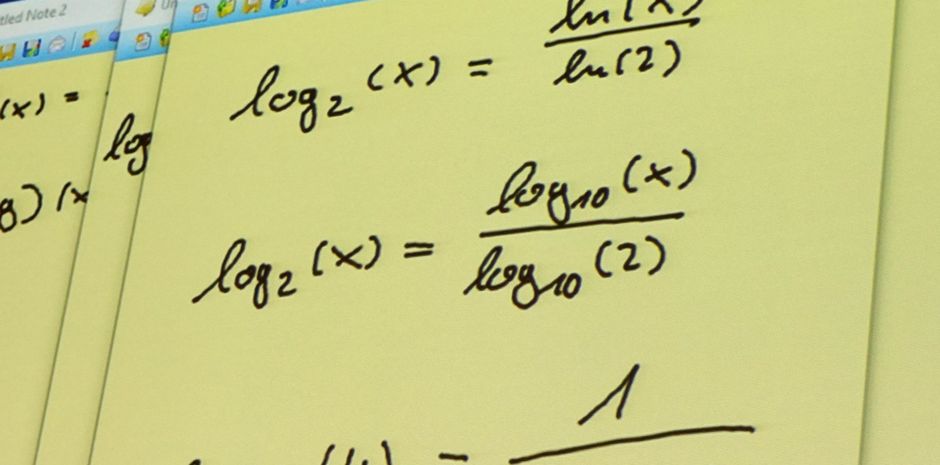 tled Note 2
(x) =
log
g) (x
log₂ (x) = ln(x) / ln(2)
log₂ (x) = log₁₀ (x) / log₁₀ (2)
1